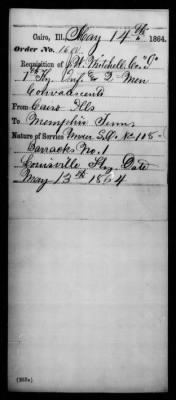 Cairo, Ill. May 14th 1864.
Order No. 1600
Requisition of W. Mitchell Co. "I"
1st Ky. Inf & 2 Men
Convalescents
From Cairo Ills
To Memphis Tenn
Nature of Service Under S.O. No 118-
Barracks No. 1
Louisville Ky. Date
May 13th 1864